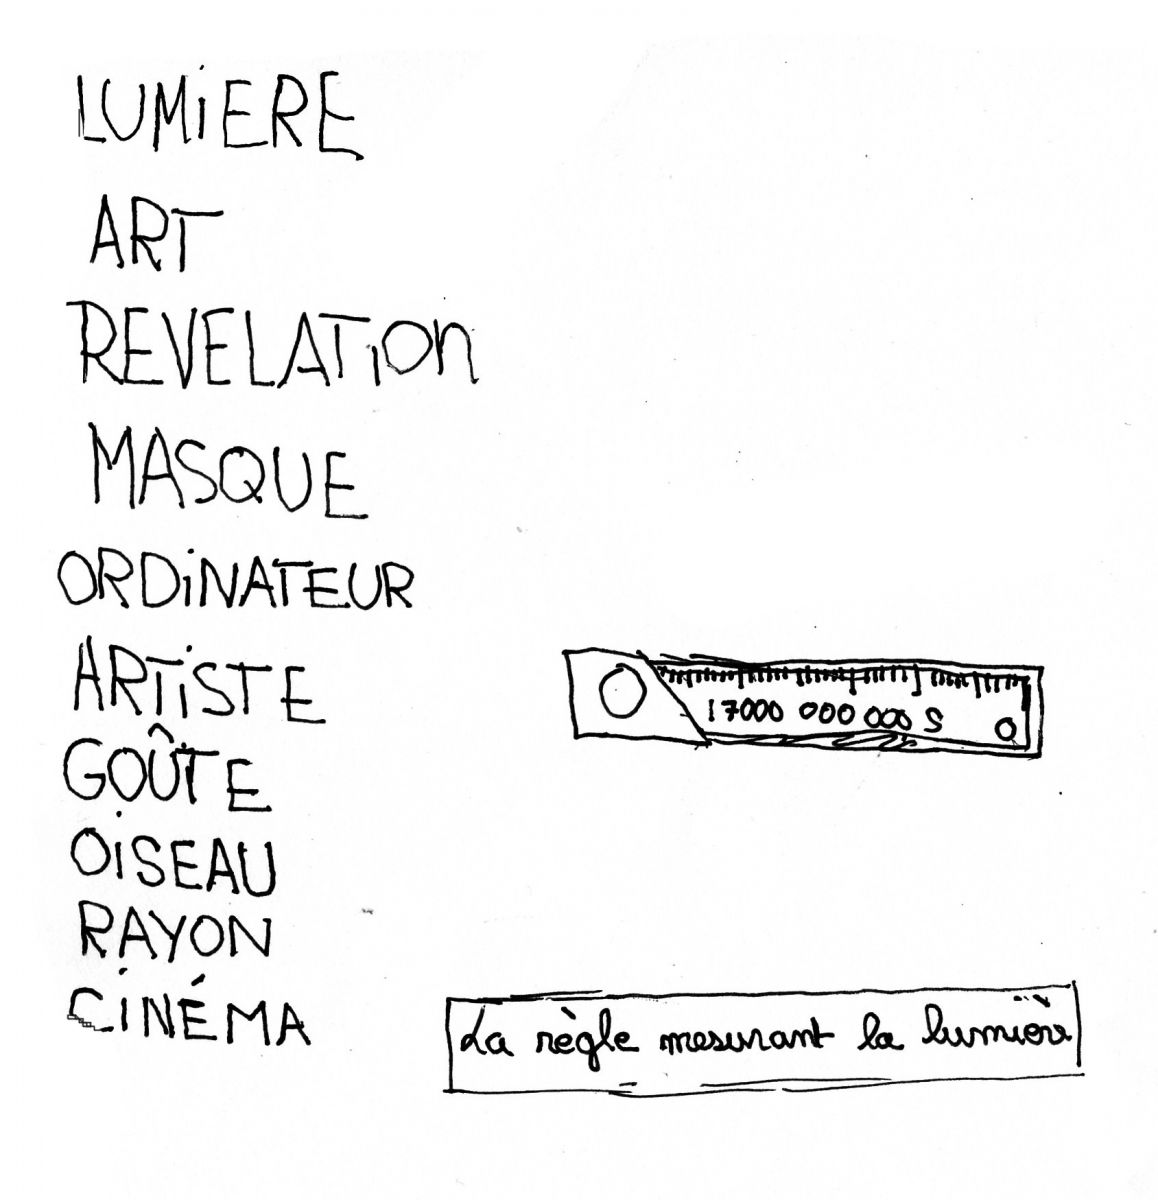 LUMiERE
ART
REVELATiOn
MASQUE
ORDiNATEUR
ARTiSTE
17000 000 000 S 0
GOÛTE
OiSEAU
RAYON
CiNÉMA
La règle mesurant la lumière